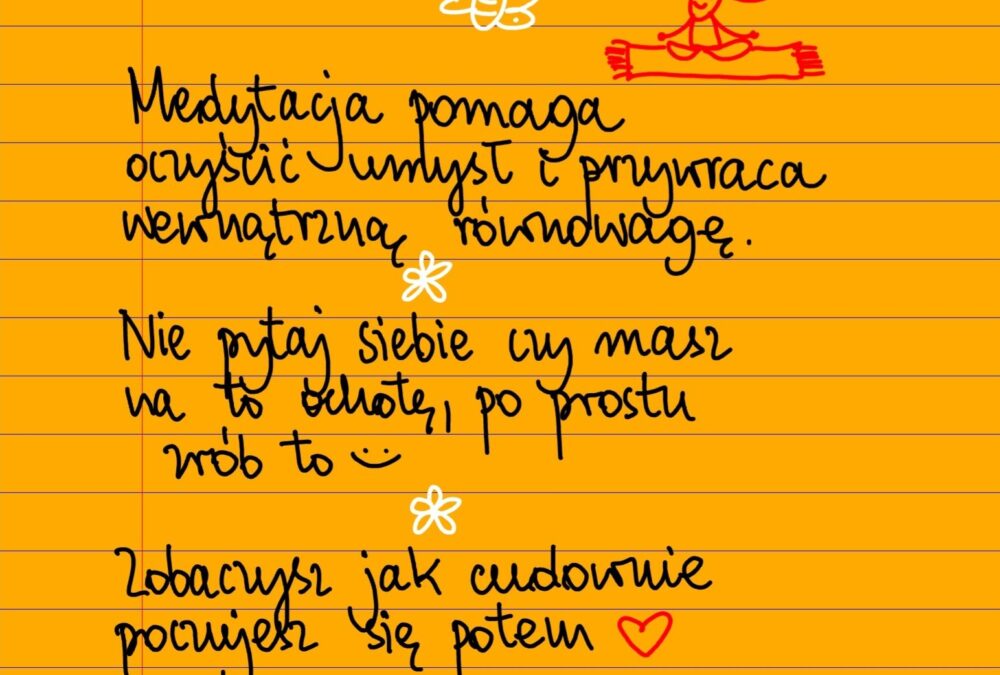 Medytacja pomaga
oczyścić umysł i przywraca
wewnątrzną równowagę.
Nie pytaj siebie czy masz
na to ochotę, po prostu
zrób to
Zobaczysz jak cudownie
poczujesz się potem